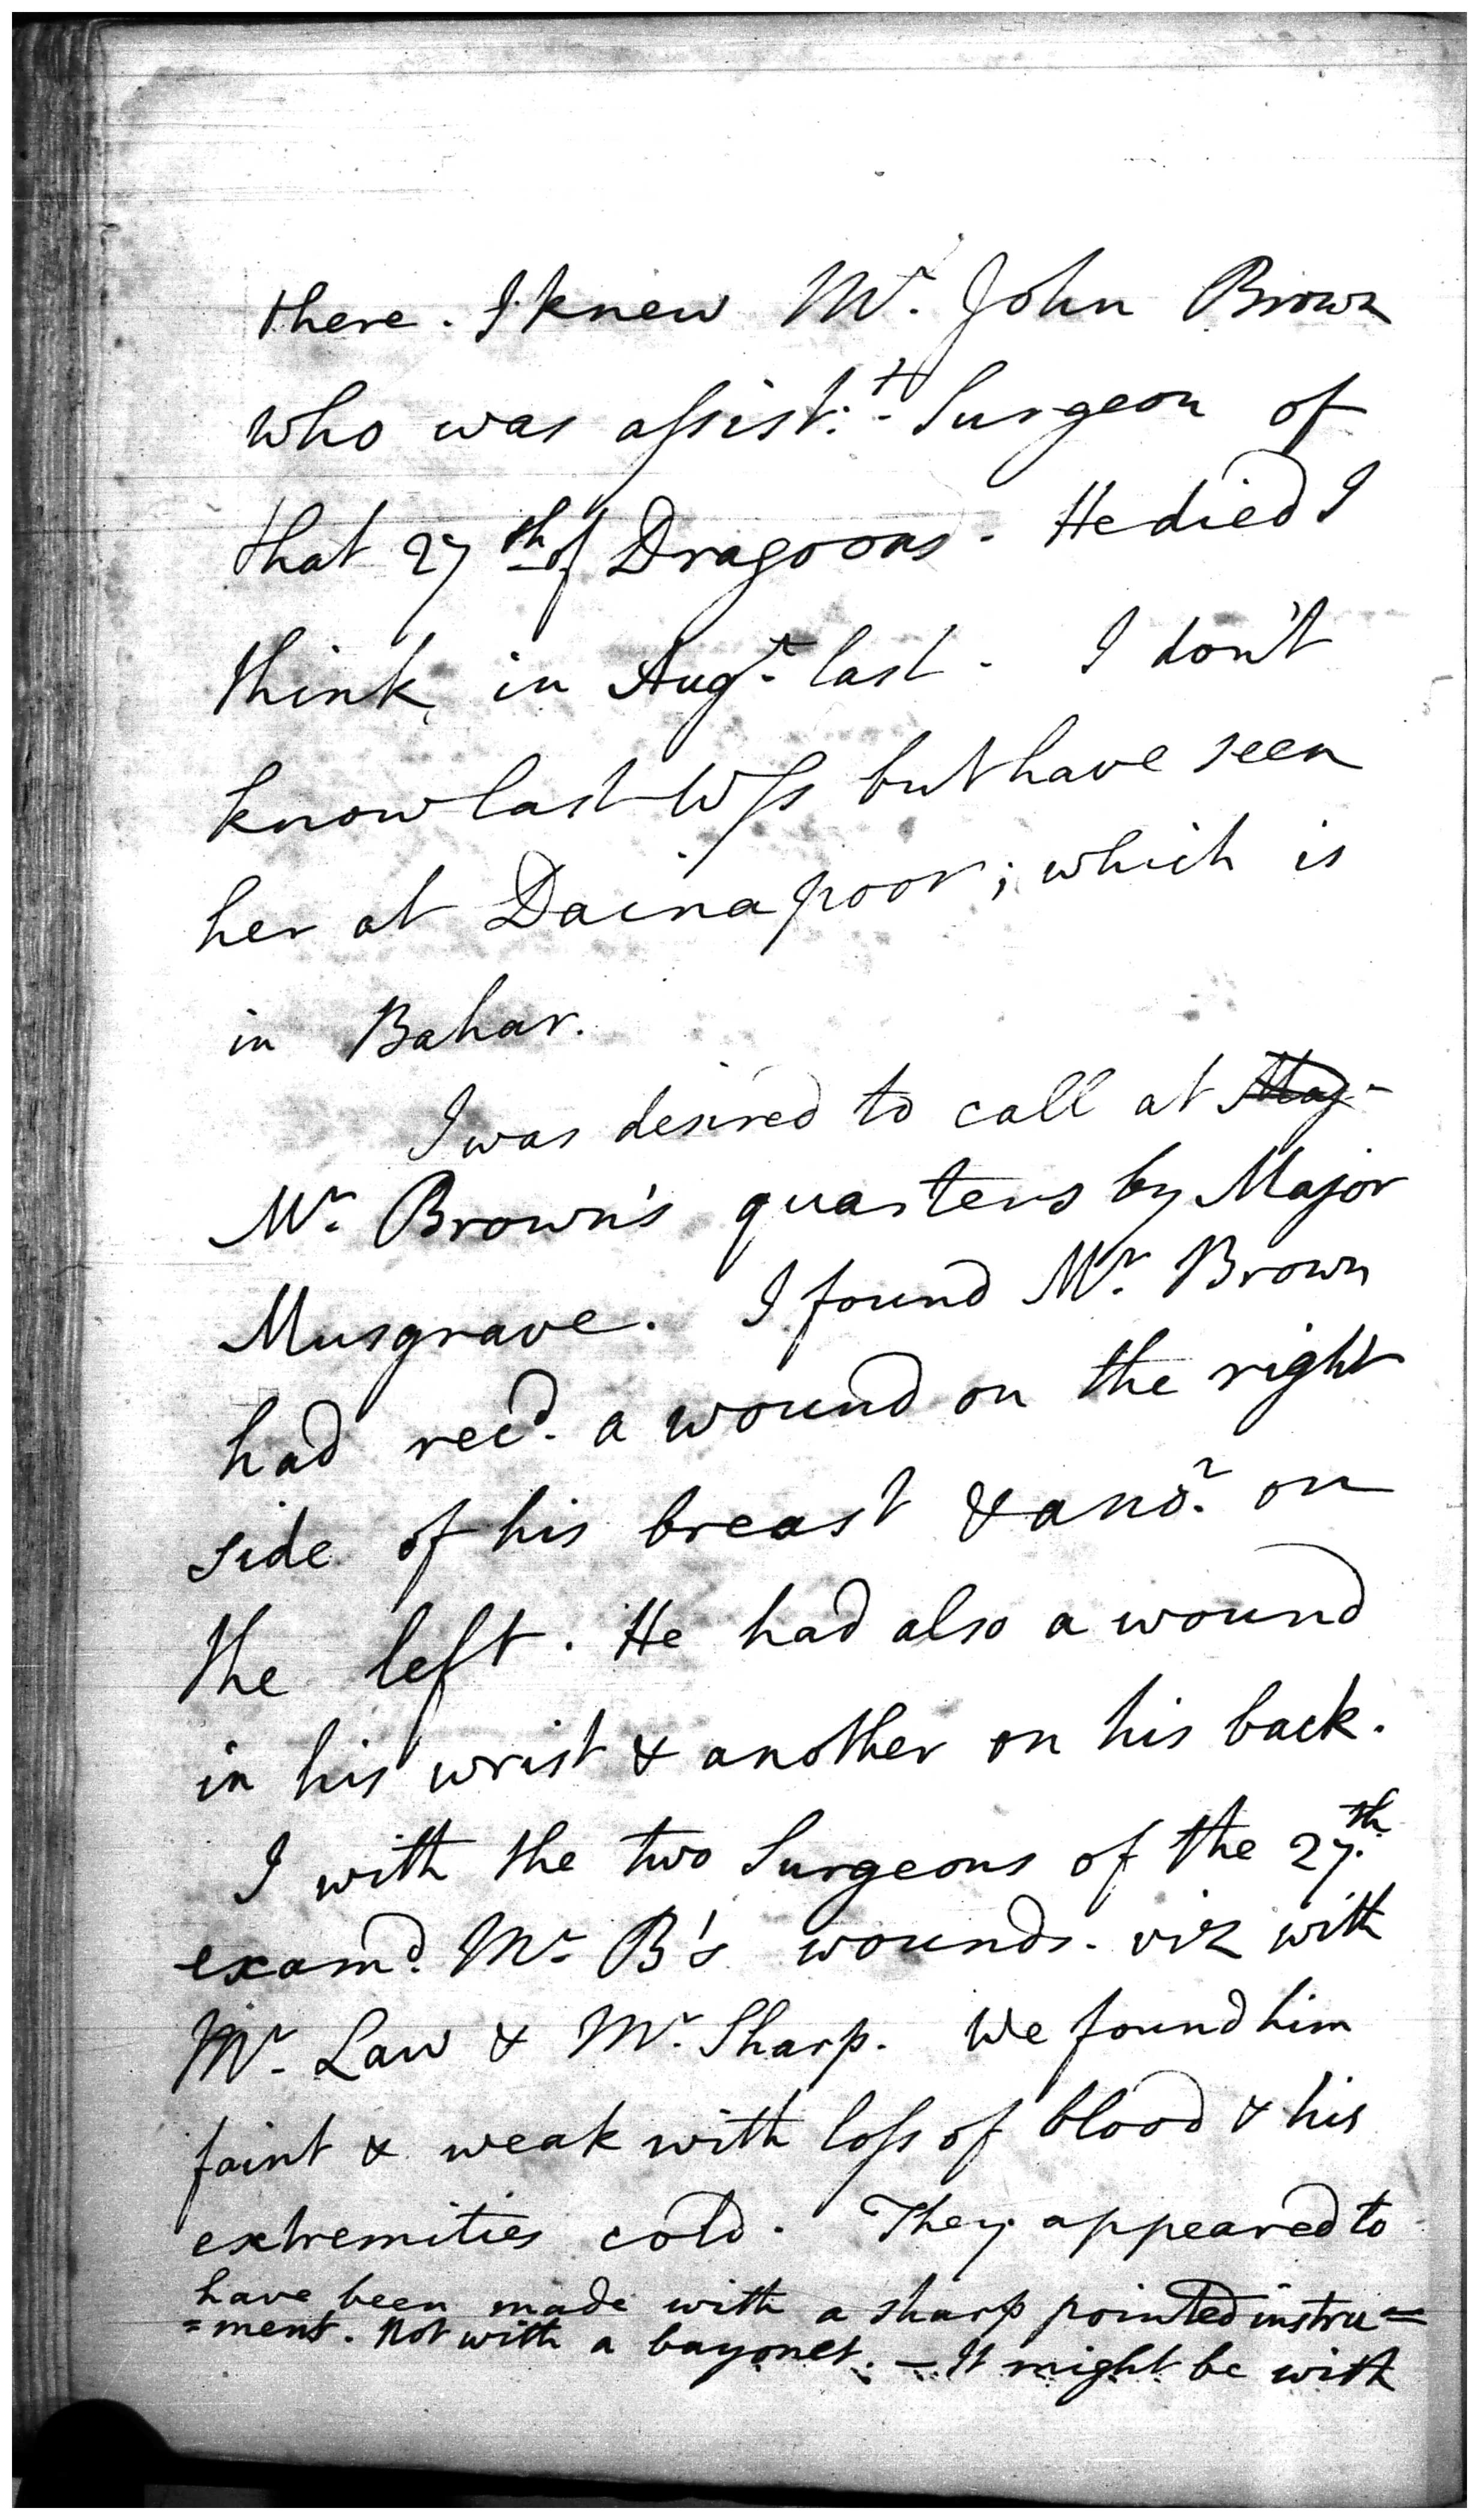 there. I knew Mr. John Brown
who was assist:t. Surgeon of
that 27th of Dragoons. He died I
think, in Augt. last. I don't
know last but have seen
her at Dainapoor; which is
in Bahar.
I was desired to call at Maj-
Mr. Brown's quarters by Major
Musgrave. I found Mr. Brown
had recd. a wound on the right
side of his breast & anor. on
the left. He had also a wound
in his wrist & another on his back.
I with the two Surgeons of the 27.th
examd. Mr. B's wounds. viz with
Mr. Law & Mr. Sharp. We found him
faint & weak with loss of blood & his
extremities cold. They appeared to
have been made with a sharp pointed instru=
=ment. Not with a bayonet. — It might be with